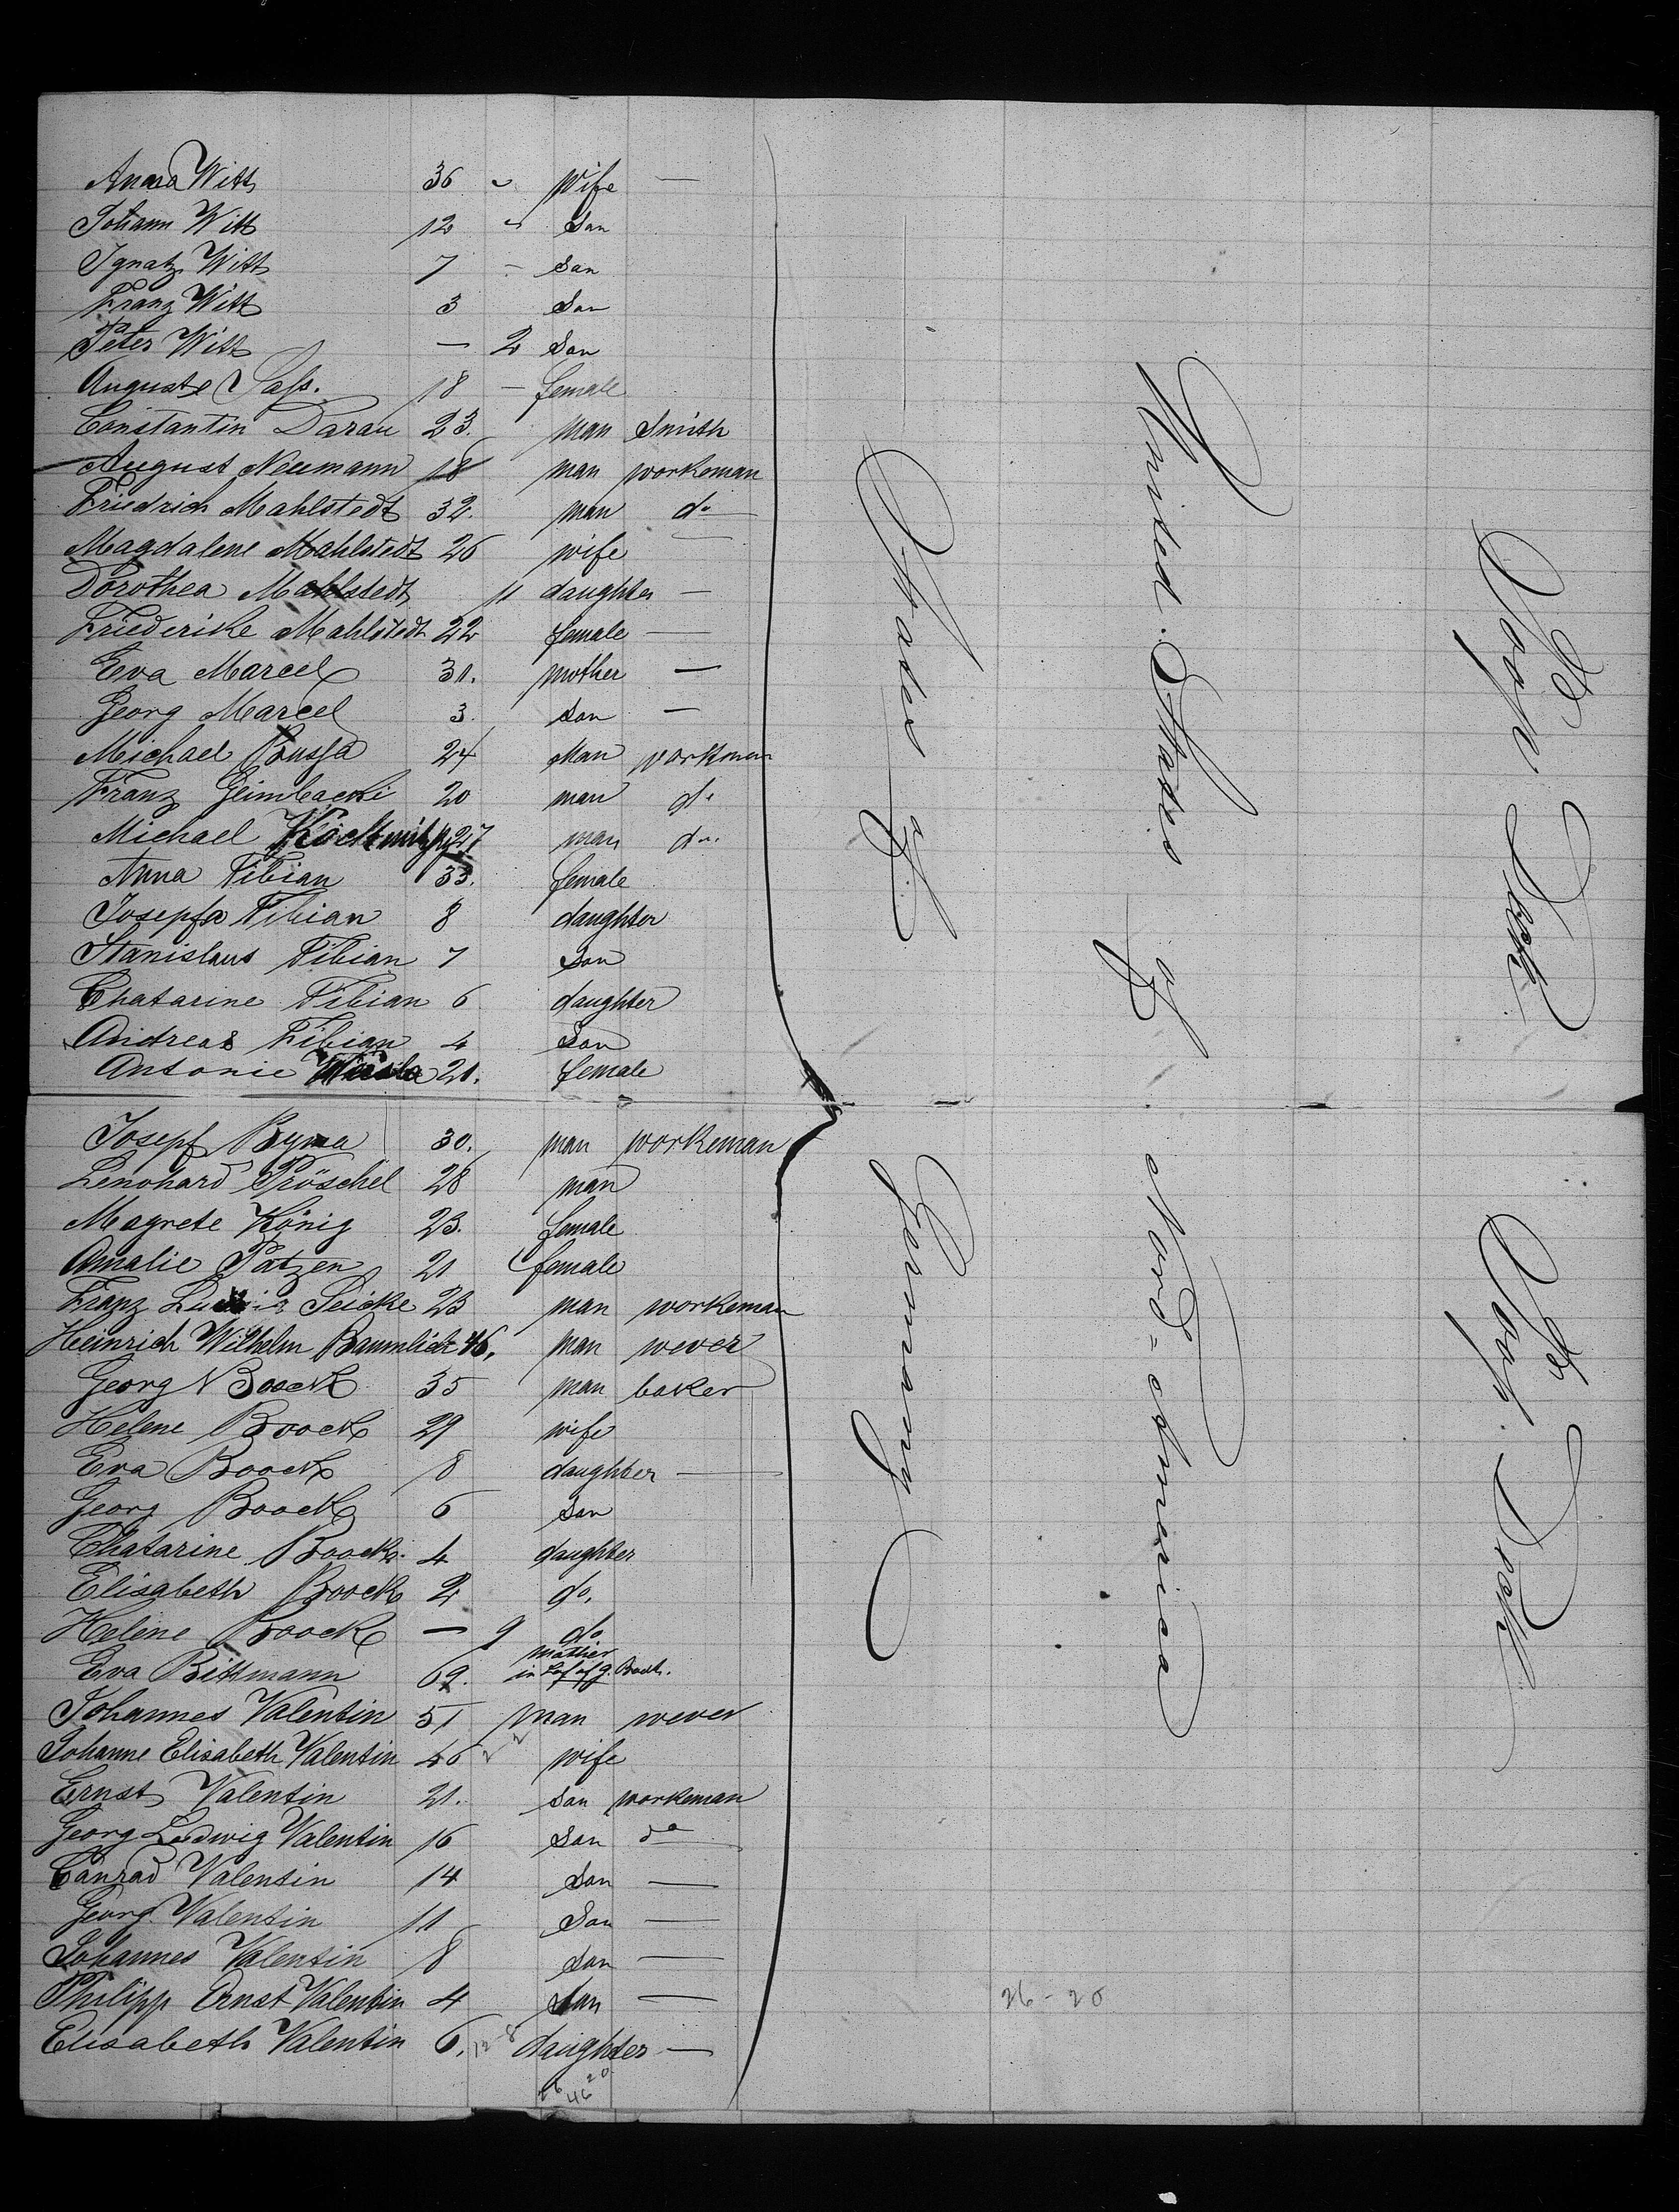 Anna Witt 36 " wife —
Johann Witt 12 " Son
Ignatz Witt 7 - Son
Franz Witt 3 Son
Peter Witt — 2 Son
Auguste Sass. 18 — female
Constantin Darau 23. man Smith
August Neumann 18 man workeman
Friedrich Mahlstedt 32. man do
Magdalene Mahlstedt 26 wife —
Dorothea Mahlstedt 11 daughter —
Friederike Mahlstedt 22 female —
Eva Marcel 31. mother —
Georg Marcel 3. son —
Michael Bussa 24 Man workman
Franz 20 man do
Michael 27 man do.
Anna Fibian 33. female
Josepfa Fibian 8 daughter
Stanislaus Fibian 7 Son
Chatarine Fibian 6 daughter
Andreas Fibian 4 Son
Antonie 21. female
Josepf Byma 30. man workeman
Lenohard Pröschel 28 man
Magrete König 23. female
Amalie Patzen 21 female
Franz Ludwig Seicke 23 man workeman
Heinrich Wilhelm 46. man wever
Georg Boock 35 man baker
Helene Boock 29 wife
Eva Boock 8 daughter —
Georg Boock 6 son
Chatarine Boock. 4 daughter
Elisabeth Boock 2 do.
Helene Boock — 9 do
Eva Bittmann 69. mother
in Laf of g. Boock.
Johannes Valentin 51 man wever
Johanne Elisabeth Valentin 46 wife
Ernst Valentin 21. son workeman
Georg Ludwig Valentin 16 Son do
Conrad Valentin 14 Son —
Georg Valentin 11 Son —
Johannes Valentin 8 son —
Philipp Ernst Valentin 4 Son —
Elisabeth Valentin 6. 12-8 daughter —
26 20
46
States of Germany
United States of Nord=America
26-20